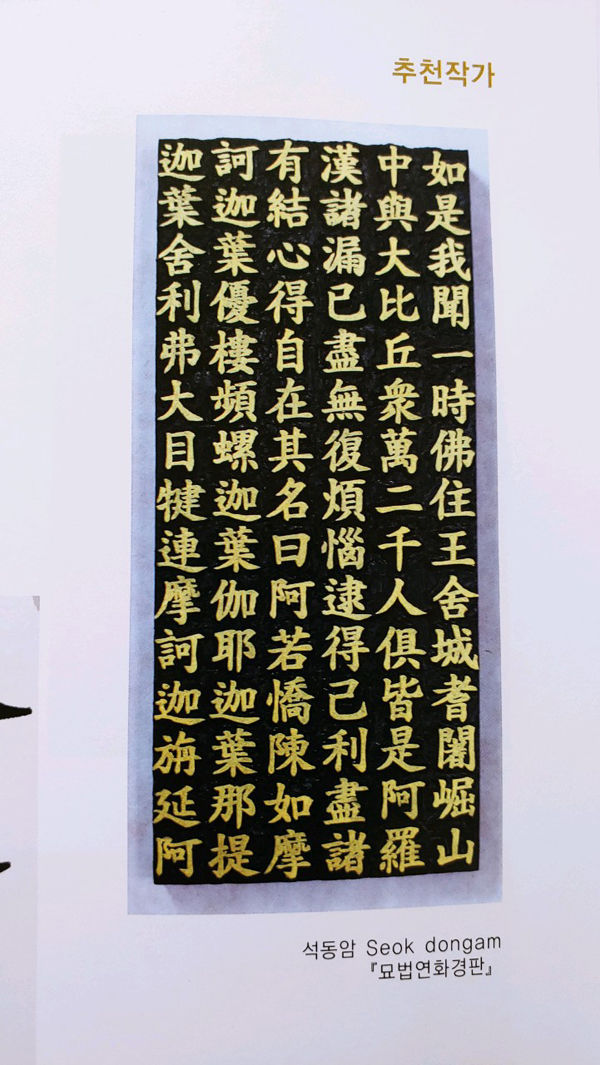 추천작가
如是我聞一時佛住王舍城耆闍崛山
中與大比丘衆萬二千人俱皆是阿羅
漢諸漏已盡無復煩惱逮得己利盡諸
有結心得自在其名曰阿若憍陳如摩
訶迦葉優樓頻螺迦葉伽耶迦葉那提
迦葉舍利弗大目犍連摩訶迦旃延阿
석동암 Seok dongam
『묘법연화경판』